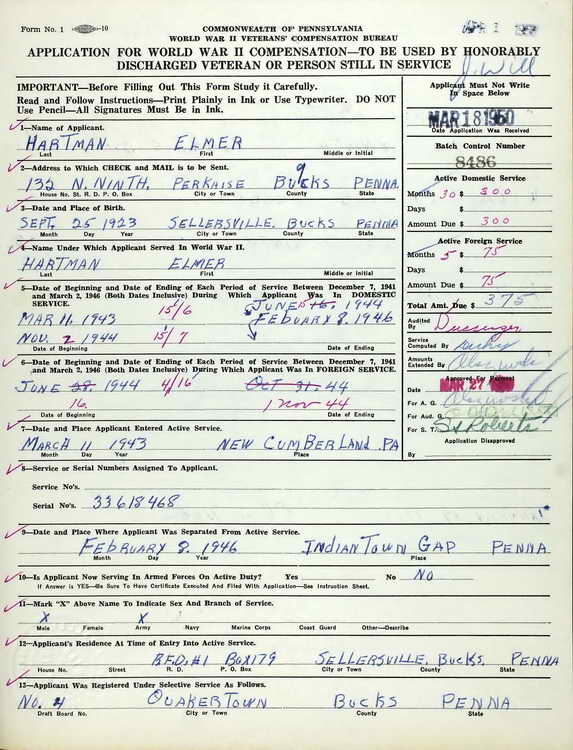 Form No. 1
COMMONWEALTH OF PENNSYLVANIA
WORLD WAR II VETERANS' COMPENSATION BUREAU
APPLICATION FOR WORLD WAR II COMPENSATION—TO BE USED BY HONORABLY
DISCHARGED VETERAN OR PERSON STILL IN SERVICE
IMPORTANT—Before Filling Out This Form Study it Carefully.
Read and Follow Instructions—Print Plainly in Ink or Use Typewriter. DO NOT
Use Pencil—All Signatures Must Be in Ink.
Applicant Must Not Write
In Space Below
MAR 18 1950
Date Application Was Received
Batch Control Number
8486
Active Domestic Service
Months 30 $ 300
Days $
Amount Due $ 300
Active Foreign Service
Months 5 $ 75
Days $
Amount Due $ 75
Total Amt. Due $ 375
Audited By
Service Computed By
Amounts Extended By
Approved For Payment
Date MAR 27
For A. G.
For Aud. G.
For S. T. St Roberts
Application Disapproved
By
1—Name of Applicant.
HARTMAN ELMER
Last First Middle or Initial
2—Address to Which CHECK and MAIL is to be Sent.
132 N. NINTH, PERKAISE BUCKS PENNA.
House No. St. R. D. P. O. Box City or Town County State
3—Date and Place of Birth.
SEPT. 25 1923 SELLERSVILLE, BUCKS PENNA
Month Day Year City or Town County State
4—Name Under Which Applicant Served In World War II.
HARTMAN ELMER
Last First Middle or Initial
5—Date of Beginning and Date of Ending of Each Period of Service Between December 7, 1941
and March 2, 1946 (Both Dates Inclusive) During Which Applicant Was In DOMESTIC
SERVICE.
JUNE 15 16, 1944
MAR 11, 1943 15/6 FEBUARY 8, 1946
NOV. 2 1944 15/7
Date of Beginning Date of Ending
6—Date of Beginning and Date of Ending of Each Period of Service Between December 7, 1941
and March 2, 1946 (Both Dates Inclusive) During Which Applicant Was In FOREIGN SERVICE.
JUNE 28 1944 4/16 Oct 31, 44
16 1 Nov 44
Date of Beginning Date of Ending
7—Date and Place Applicant Entered Active Service.
MARCH 11 1943 NEW CUMBERLAND PA
Month Day Year Place
8—Service or Serial Numbers Assigned To Applicant.
Service No's.
Serial No's. 33618468
9—Date and Place Where Applicant Was Separated From Active Service.
FEBRUARY 8, 1946 INDIANTOWN GAP PENNA
Month Day Year Place
10—Is Applicant Now Serving In Armed Forces On Active Duty? Yes No NO
If Answer is YES—Be Sure To Have Certificate Executed And Filed With Application—See Instruction Sheet.
11—Mark "X" Above Name To Indicate Sex And Branch of Service.
X X
Male Female Army Navy Marine Corps Coast Guard Other—Describe
12—Applicant's Residence At Time of Entry Into Active Service.
R.F.D. #1 BOX 179 SELLERSVILLE, BUCKS, PENNA
House No. Street R. D. P. O. Box City or Town County State
13—Applicant Was Registered Under Selective Service As Follows.
NO. 4 QUAKERTOWN BUCKS PENNA
Draft Board No. City or Town County State